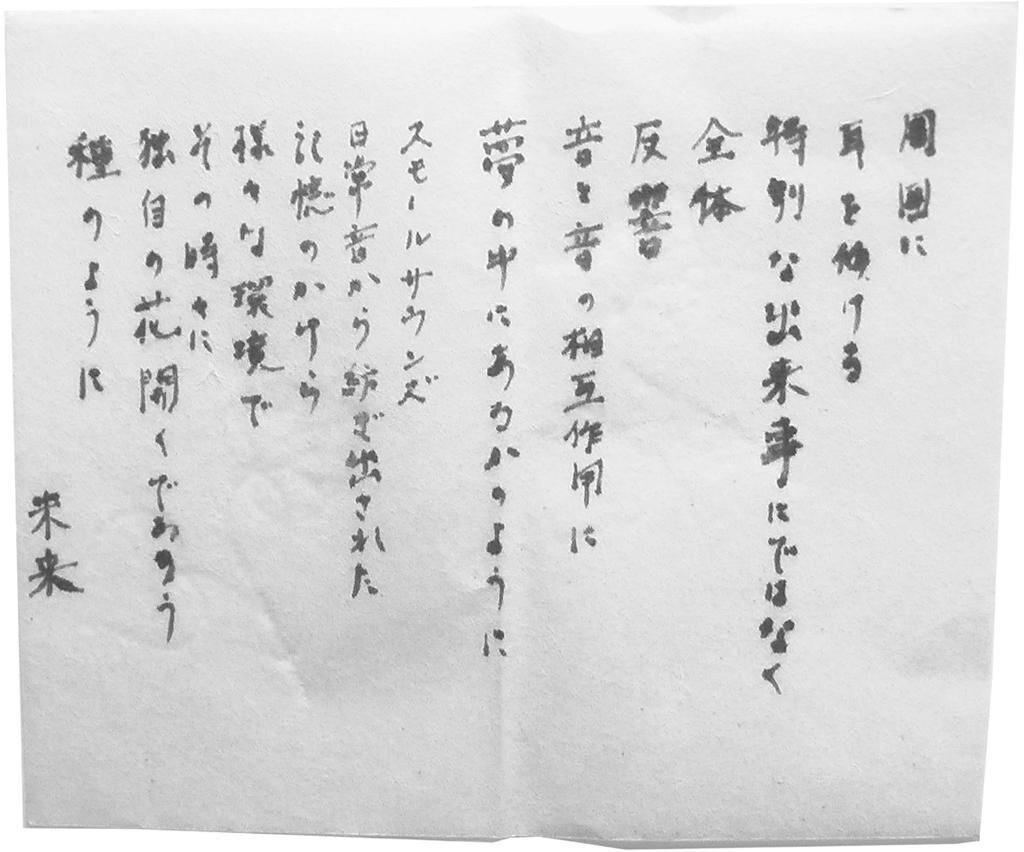 周囲に
耳を傾ける
特別な出来事にではなく
全体
反響
音と音の相互作用に
夢の中にあるかのように
スモールサウンズ
日常音から紡ぎ出された
記憶のかけら
様々な環境で
その時々に
独自の花開くであろう
種のように
未来